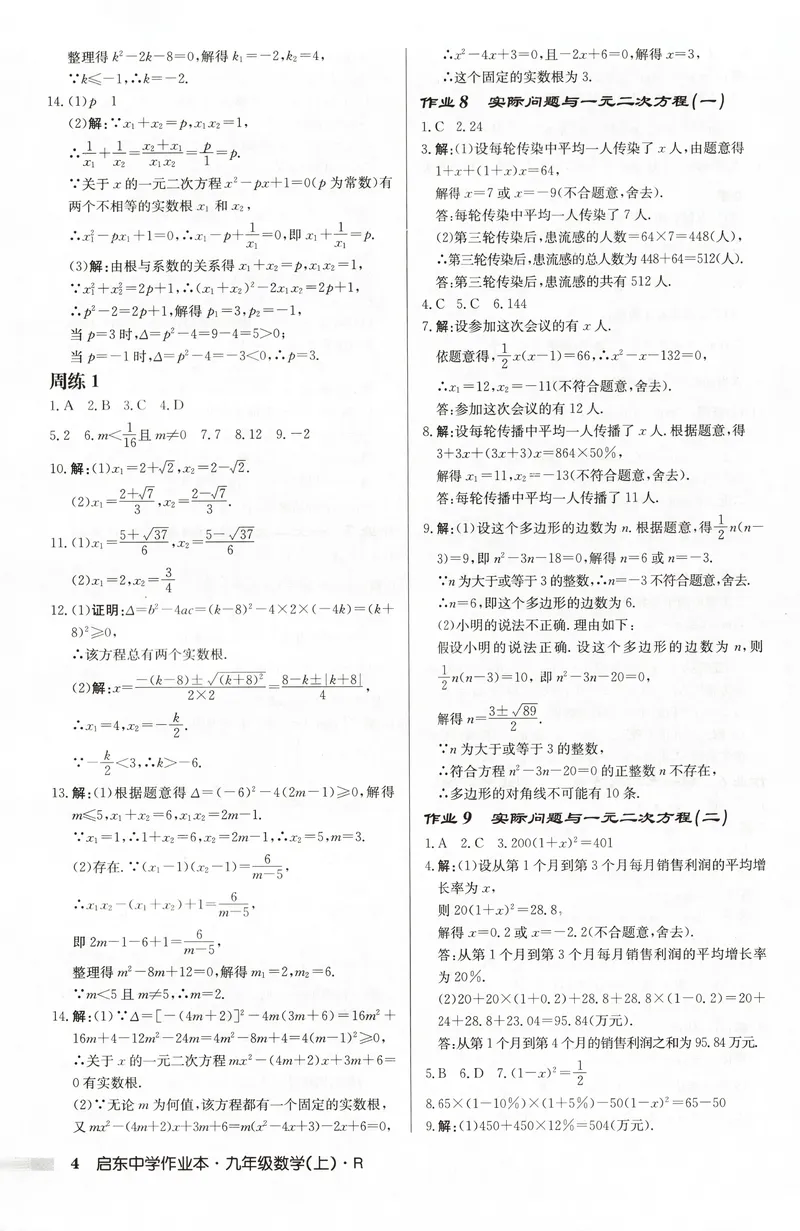 整理得 k²-2k-8=0,解得 k₁=-2,k₂=4,
∵k≤-1,∴k=-2.
14.(1)p 1
(2)解:∵x₁+x₂=p,x₁x₂=1,
∴1/x₁+1/x₂=(x₂+x₁)/(x₁x₂)=p/1=p.
∵关于 x 的一元二次方程 x²-px+1=0(p 为常数)有
两个不相等的实数根 x₁ 和 x₂,
∴x₁²-px₁+1=0,∴x₁-p+1/x₁=0,即 x₁+1/x₁=p.
(3)解:由根与系数的关系得 x₁+x₂=p,x₁x₂=1,
∵x₁²+x₂²=2p+1,∴(x₁+x₂)²-2x₁x₂=2p+1,
∴p²-2=2p+1,解得 p₁=3,p₂=-1,
当 p=3 时,Δ=p²-4=9-4=5>0;
当 p=-1 时,Δ=p²-4=-3<0,∴p=3.
周练 1
1.A 2.B 3.C 4.D
5.2 6.m<1/16且 m≠0 7.7 8.12 9.-2
10.解:(1)x₁=2+√2,x₂=2-√2.
(2)x₁=(2+√7)/3,x₂=(2-√7)/3.
11.(1)x₁=(5+√37)/6,x₂=(5-√37)/6
(2)x₁=2,x₂=3/4
12.(1)证明:Δ=b²-4ac=(k-8)²-4×2×(-4k)=(k+
8)²≥0,
∴该方程总有两个实数根.
(2)解:x=(-(k-8)±√(k+8)²)/(2×2)=(8-k±|k+8|)/4,
∴x₁=4,x₂=-k/2.
∵-k/2<3,∴k>-6.
13.解:(1)根据题意得 Δ=(-6)²-4(2m-1)≥0,解得
m≤5,x₁+x₂=6,x₁x₂=2m-1.
∵x₁=1,∴1+x₂=6,x₂=2m-1,∴x₂=5,m=3.
(2)存在.∵(x₁-1)(x₂-1)=6/(m-5),
∴x₁x₂-(x₁+x₂)+1=6/(m-5),
即 2m-1-6+1=6/(m-5),
整理得 m²-8m+12=0,解得 m₁=2,m₂=6.
∵m<5 且 m≠5,∴m=2.
14.解:(1)∵Δ=[-(4m+2)]²-4m(3m+6)=16m²+
16m+4-12m²-24m=4m²-8m+4=4(m-1)²≥0,
∴关于 x 的一元二次方程 mx²-(4m+2)x+3m+6=
0 有实数根.
(2)∵无论 m 为何值,该方程都有一个固定的实数根,
又 mx²-(4m+2)x+3m+6=m(x²-4x+3)-2x+6=0,
∴x²-4x+3=0,且-2x+6=0,解得 x=3,
∴这个固定的实数根为 3.
作业 8 实际问题与一元二次方程(一)
1.C 2.24
3.解:(1)设每轮传染中平均一人传染了 x 人,由题意得
1+x+(1+x)x=64,
解得 x=7 或 x=-9(不合题意,舍去).
答:每轮传染中平均一人传染了 7 人.
(2)第三轮传染后,患流感的人数=64×7=448(人),
∴第三轮传染后,患流感的总人数为 448+64=512(人).
答:第三轮传染后,患流感的共有 512 人.
4.C 5.C 6.144
7.解:设参加这次会议的有 x 人.
依题意得,1/2x(x-1)=66,∴x²-x-132=0,
∴x₁=12,x₂=-11(不符合题意,舍去).
答:参加这次会议的有 12 人.
8.解:设每轮传播中平均一人传播了 x 人.根据题意,得
3+3x+(3x+3)x=864×50%,
解得 x₁=11,x₂=-13(不符合题意,舍去).
答:每轮传播中平均一人传播了 11 人.
9.解:(1)设这个多边形的边数为 n.根据题意,得1/2n(n-
3)=9,即 n²-3n-18=0,解得 n=6 或 n=-3.
∵n 为大于或等于 3 的整数,∴n=-3 不符合题意,舍去.
∴n=6,即这个多边形的边数为 6.
(2)小明的说法不正确.理由如下:
假设小明的说法正确.设这个多边形的边数为 n,则
1/2n(n-3)=10,即 n²-3n-20=0,
解得 n=(3±√89)/2.
∵n 为大于或等于 3 的整数,
∴符合方程 n²-3n-20=0 的正整数 n 不存在,
∴多边形的对角线不可能有 10 条.
作业 9 实际问题与一元二次方程(二)
1.A 2.C 3.200(1+x)²=401
4.解:(1)设从第 1 个月到第 3 个月每月销售利润的平均增
长率为 x,
则 20(1+x)²=28.8,
解得 x=0.2 或 x=-2.2(不合题意,舍去).
答:从第 1 个月到第 3 个月每月销售利润的平均增长率
为 20%.
(2)20+20×(1+0.2)+28.8+28.8×(1-0.2)=20+
24+28.8+23.04=95.84(万元).
答:从第 1 个月到第 4 个月的销售利润之和为 95.84 万元.
5.B 6.D 7.(1-x)²=1/2
8.65×(1-10%)×(1+5%)-50(1-x)²=65-50
9.解:(1)450+450×12%=504(万元).
4 启东中学作业本·九年级数学(上)·R